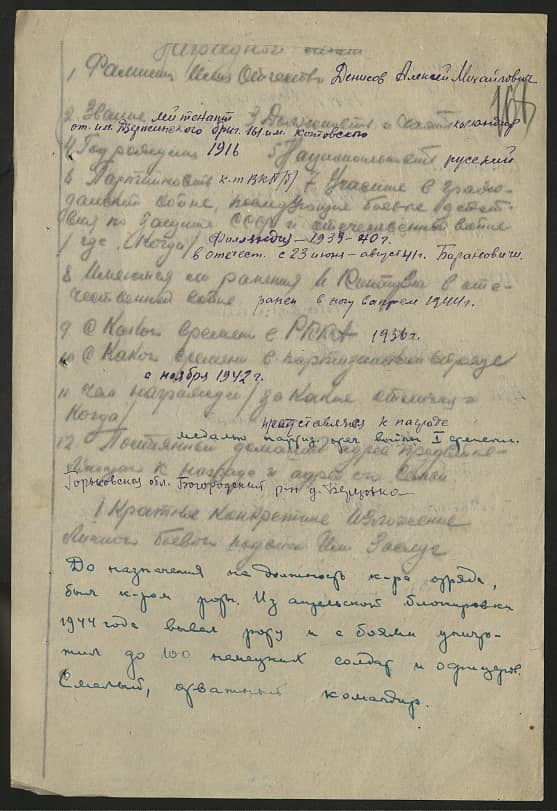 Наградной лист
1, Фамилия Имя Отчество Денисов Алексей Михайлович
166
2, Звание лейтенант 3, Должность и часть командир
от. им. Дзержинского бриг. 161 им. Котовского
4, Год рождения 1916 5, Национальность русский
6 Партийность к-т ВКП/б/ 7 Участие в граж-
данской войне, последующие боевые дейст-
вия по защите СССР и отечественной войне
/где, Когда/ Финляндия – 1939-40г.
в отечест. с 23 июня – август 41г. Барановичи.
8 Имеются ли ранения и контузии в оте-
чественной войне ранен в ногу в апреле 1944г.
9 С какого времени в РККА 1936г.
10 С какого времени в партизанском отряде
с ноября 1942г.
11 Чем награжден / за какие отличия и
Когда/ представлялся к награде
медалью партиз. отеч. войны I степени.
12 Постоянный домашний адрес представля-
емого к награде и адрес его семьи
Горьковская обл. Богородский р-н д. Березовка
1 Краткое конкретное изложение
личного боевого подвига или заслуг
До назначения на должность к-ра отряда,
был к-ром роты. Из апрельской блокировки
1944 года вывел роту и с боями уничто-
жил до 100 немецких солдат и офицеров.
Смелый, отважный командир.